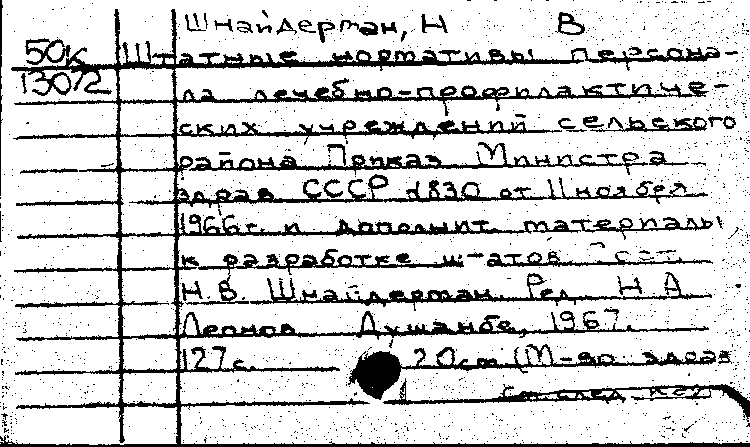 Шнайдерман, Н В
50к Штатные нормативы персона-
13072
ла лечебно-профилактиче-
ских учреждений сельского
района Приказ Министра
здрав СССР №830 от 11 ноября
1966г. и дополнит. материалы
к разработке штатов
Н.В. Шнайдерман. Ред. Н А
Леонов Душанбе, 1967.
127с. 20см (М-во здрав
см след. кар